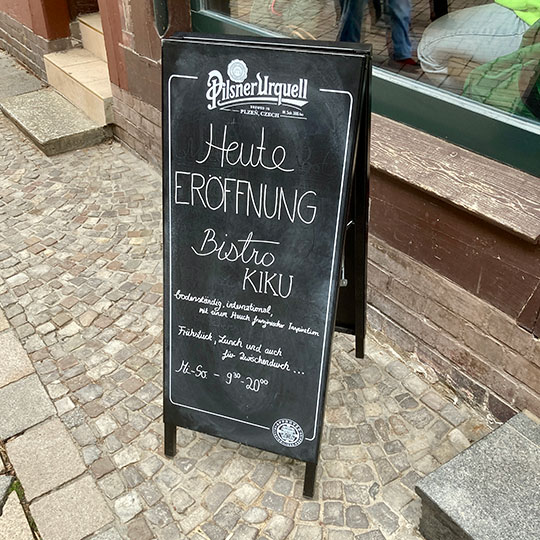 Pilsner Urquell
BREWED IN
PLZEŇ, CZECH
Heute
ERÖFFNUNG
Bistro
KIKU
bodenständig, international,
mit einem Hauch französischer Inspiration
Frühstück, Lunch und auch
für Zwischendurch ...
Mi-So. - 9³⁰ - 20⁰⁰